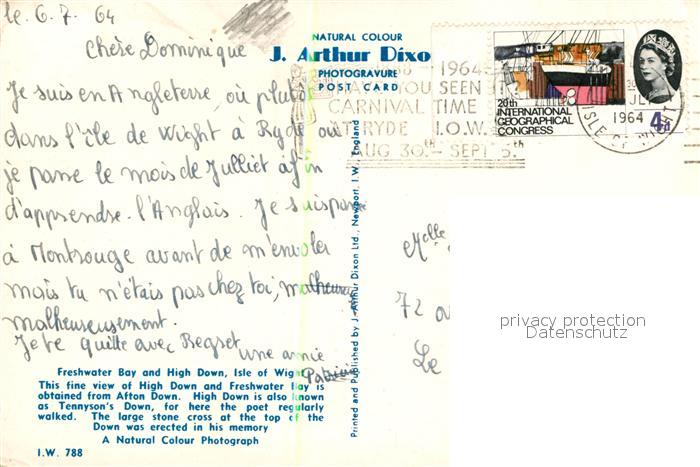 le. 6. 7. 64
Chère Dominique
Je suis en Angleterre, où plutot
dans l'île de Wight à Ryde où
je passe le mois de Julliet afin
d'apprendre l'Anglais. Je suis passé
à Montrouge avant de m'envoler
mais tu n'étais pas chez toi,
malheureusement.
Je te quitte avec Regret
une amie
Patricia
NATURAL COLOUR
J. Arthur Dixo
PHOTOGRAVURE
POST CARD
1964
YOU SEEN
CARNIVAL TIME
AT RYDE I.O.W.
AUG 30TH - SEPT 5TH
20th INTERNATIONAL
GEOGRAPHICAL
CONGRESS
4d
1964
ISLE OF WIGHT
Melle
72
Le
privacy protection
Datenschutz
Printed and Published by J. Arthur Dixon Ltd., Newport, I.W., England
Freshwater Bay and High Down, Isle of Wight
This fine view of High Down and Freshwater Bay is
obtained from Afton Down. High Down is also known
as Tennyson's Down, for here the poet regularly
walked. The large stone cross at the top of the
Down was erected in his memory
A Natural Colour Photograph
I.W. 788